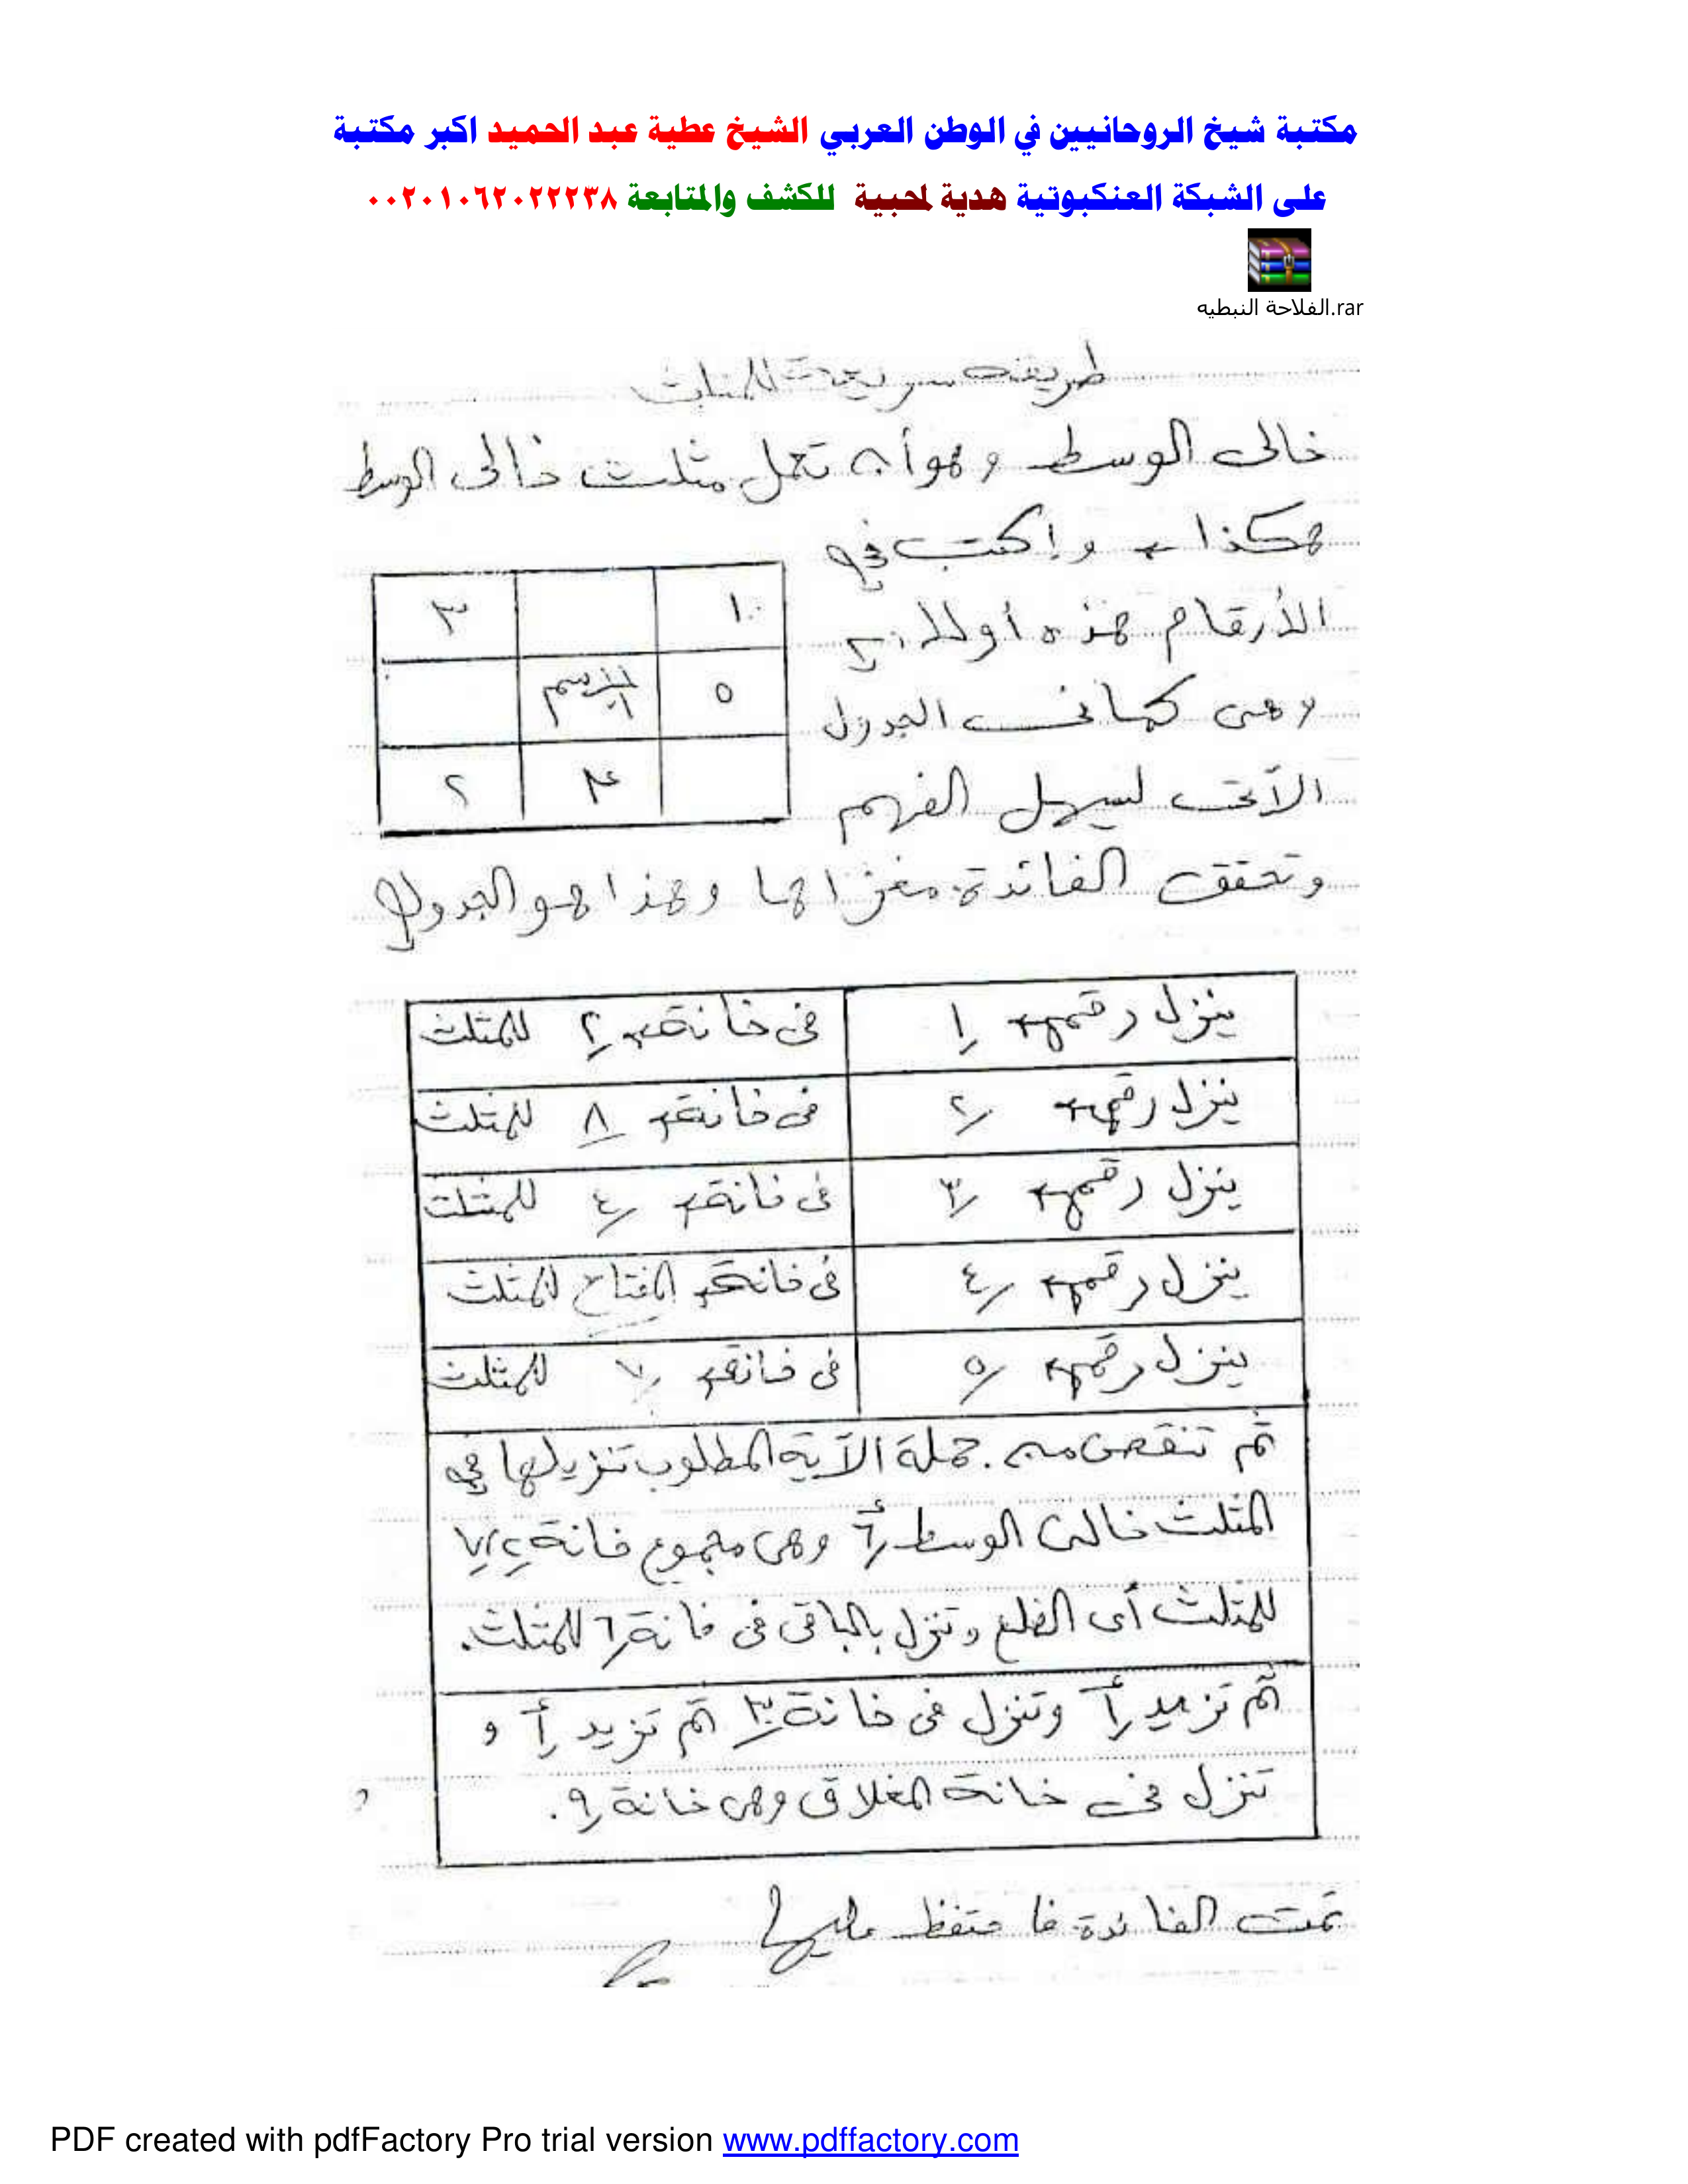 مكتبة شيخ الروحانيين في الوطن العربي الشيخ عطية عبد الحميد اكبر مكتبة
على الشبكة العنكبوتية هدية لمحبيه للكشف والمتابعة ٠٠٢٠١٠٦٢٠٢٢٢٣٨
الفلاحة النبطيه.rar
طريقة سريعة للمثلث
خالى الوسط وهو أن تعمل مثلث خالى الوسط
هكذا وإكتب فيه
الأرقام هذه أولا
وهى كما فى الجدول
الآتى ليسهل الفهم
١ ٣
٥
٤ ٢
وتحقق الفائدة مغزاها وهذا هو الجدول
ينزل رقم ١ فى خانة ٢ للمثلث
ينزل رقم ٢ فى خانة ٨ للمثلث
ينزل رقم ٣ فى خانة ٤ للمثلث
ينزل رقم ٤ فى خانة المفتاح للمثلث
ينزل رقم ٥ فى خانة ٧ للمثلث
ثم تنقص من جملة الآية المطلوب تنزيلها فى
المثلث خالى الوسط ٦ وهى مجموع خانة ٢، ٧
للمثلث أى الضلع وتنزل بالباقى فى خانة ٦ للمثلث.
ثم تزيد ١ وتنزل فى خانة ٣ ثم تزيد ١ و
تنزل فى خانة المغلاق وهى خانة ٩.
تمت الفائدة فاحتفظ عليها
PDF created with pdfFactory Pro trial version www.pdffactory.com